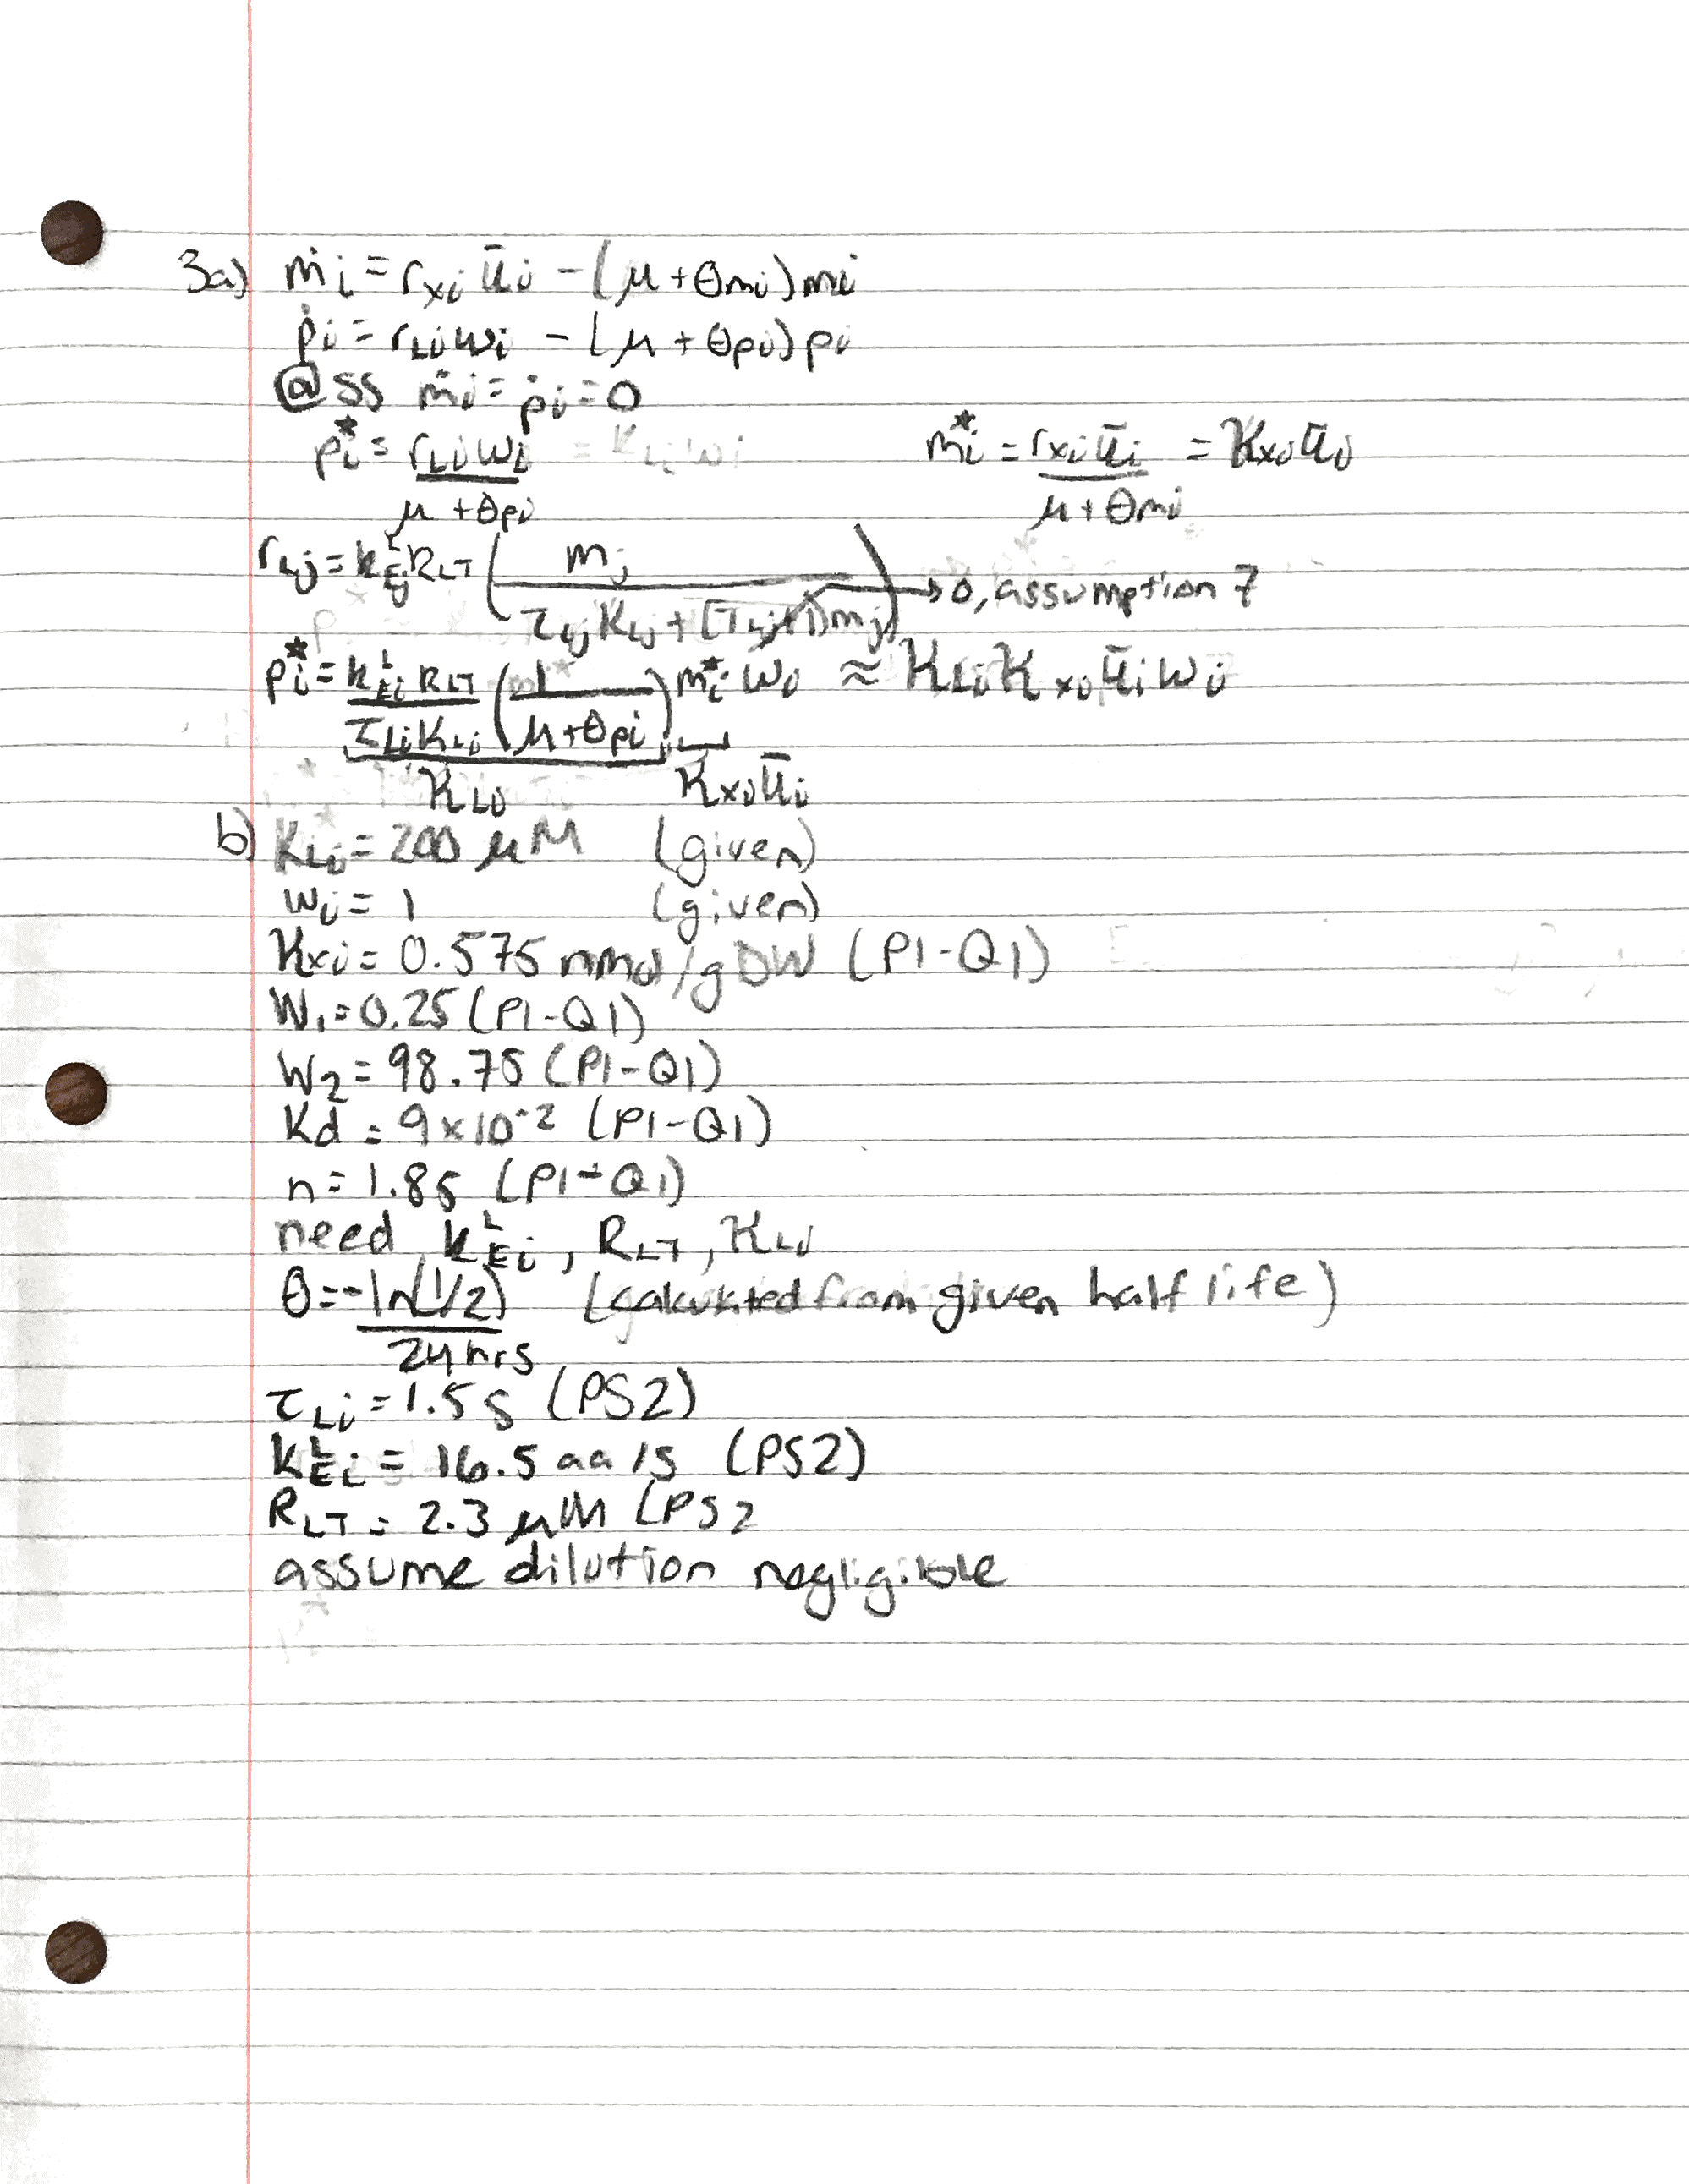 3a) ṁi = rxi ūi - (μ + θmi)mi
ṗi = rLi wi - (μ + θpi)pi
@ SS ṁi = ṗi = 0
pi* = rLi wi / μ + θpi = KLi wi    mi* = rxi ūi / μ + θmi = Kxi ūi
rLj = kEj^L RLT ( mj / τLj KLj + (τLj+1)mj ) → 0, assumption 7
pi* = kEi^L RLT / τLi KLi ( 1 / μ + θpi ) mi* wi ≈ KLi Kxi ūi wi
KLi    Kxi ūi
b) KLi = 200 μM (given)
wi = 1 (given)
Kxi = 0.575 nmol/gDW (P1-Q1)
W1 = 0.25 (P1-Q1)
W2 = 98.75 (P1-Q1)
Kd = 9x10^-2 (P1-Q1)
n = 1.85 (P1-Q1)
need kEi^L, RLT, KLi
θ = -ln(1/2) / 24 hrs (calculated from given half life)
τLi = 1.5 s (PS2)
kEi^L = 16.5 aa/s (PS2)
RLT = 2.3 μM (PS2
assume dilution negligible